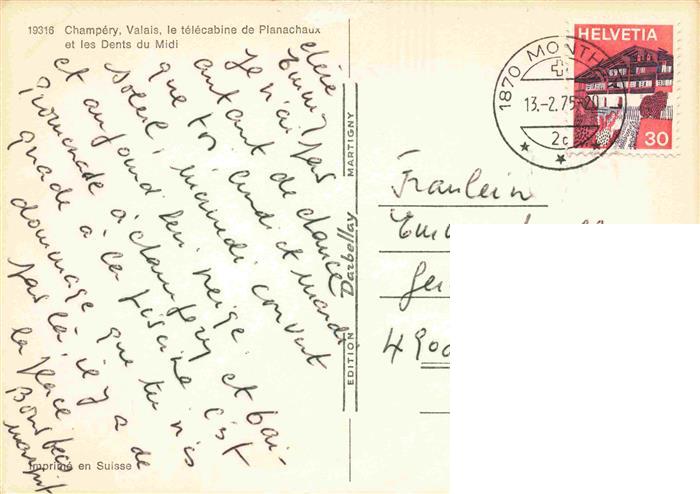 19316 Champéry, Valais, le télécabine de Planachaux
et les Dents du Midi
chère
Emmy
Je n'ai pas
autant de chance
que toi, lundi et mardi
soleil, mercredi couvert
et aujourd'hui neige.
Promenade à Champéry et bai-
gnade à la piscine. C'est
dommage que tu n'es
pas là, il y a de
la place.
Bons becs
Imprimé en Suisse
EDITION Darbellay MARTIGNY
HELVETIA
30
1870 MONTH
13.-2.75-20
2c
Fräulein
490